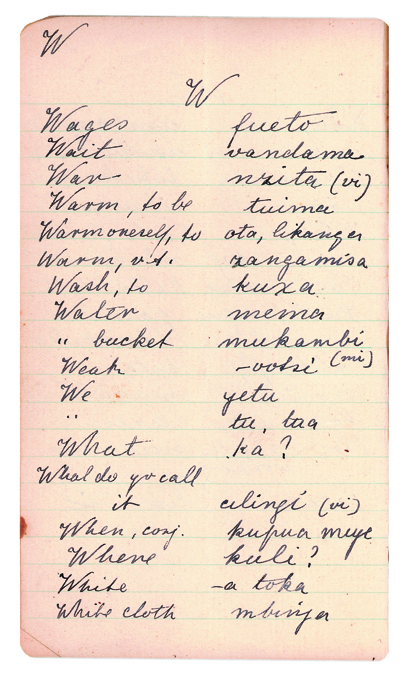 W
W
Wages fueto
Wait vandama
War nzita (vi)
Warm, to be tuima
Warm oneself, to ota, likanga
Warm, v.t. zangamisa
Wash, to kuxa
Water mema
" bucket mukambi
Weak -votsi (mi)
We yetu
" tu, tua
What ka?
What do yo call
it cilingi (vi)
When, conj. kupua meye
Where kuli?
White -a toka
White cloth mbinga